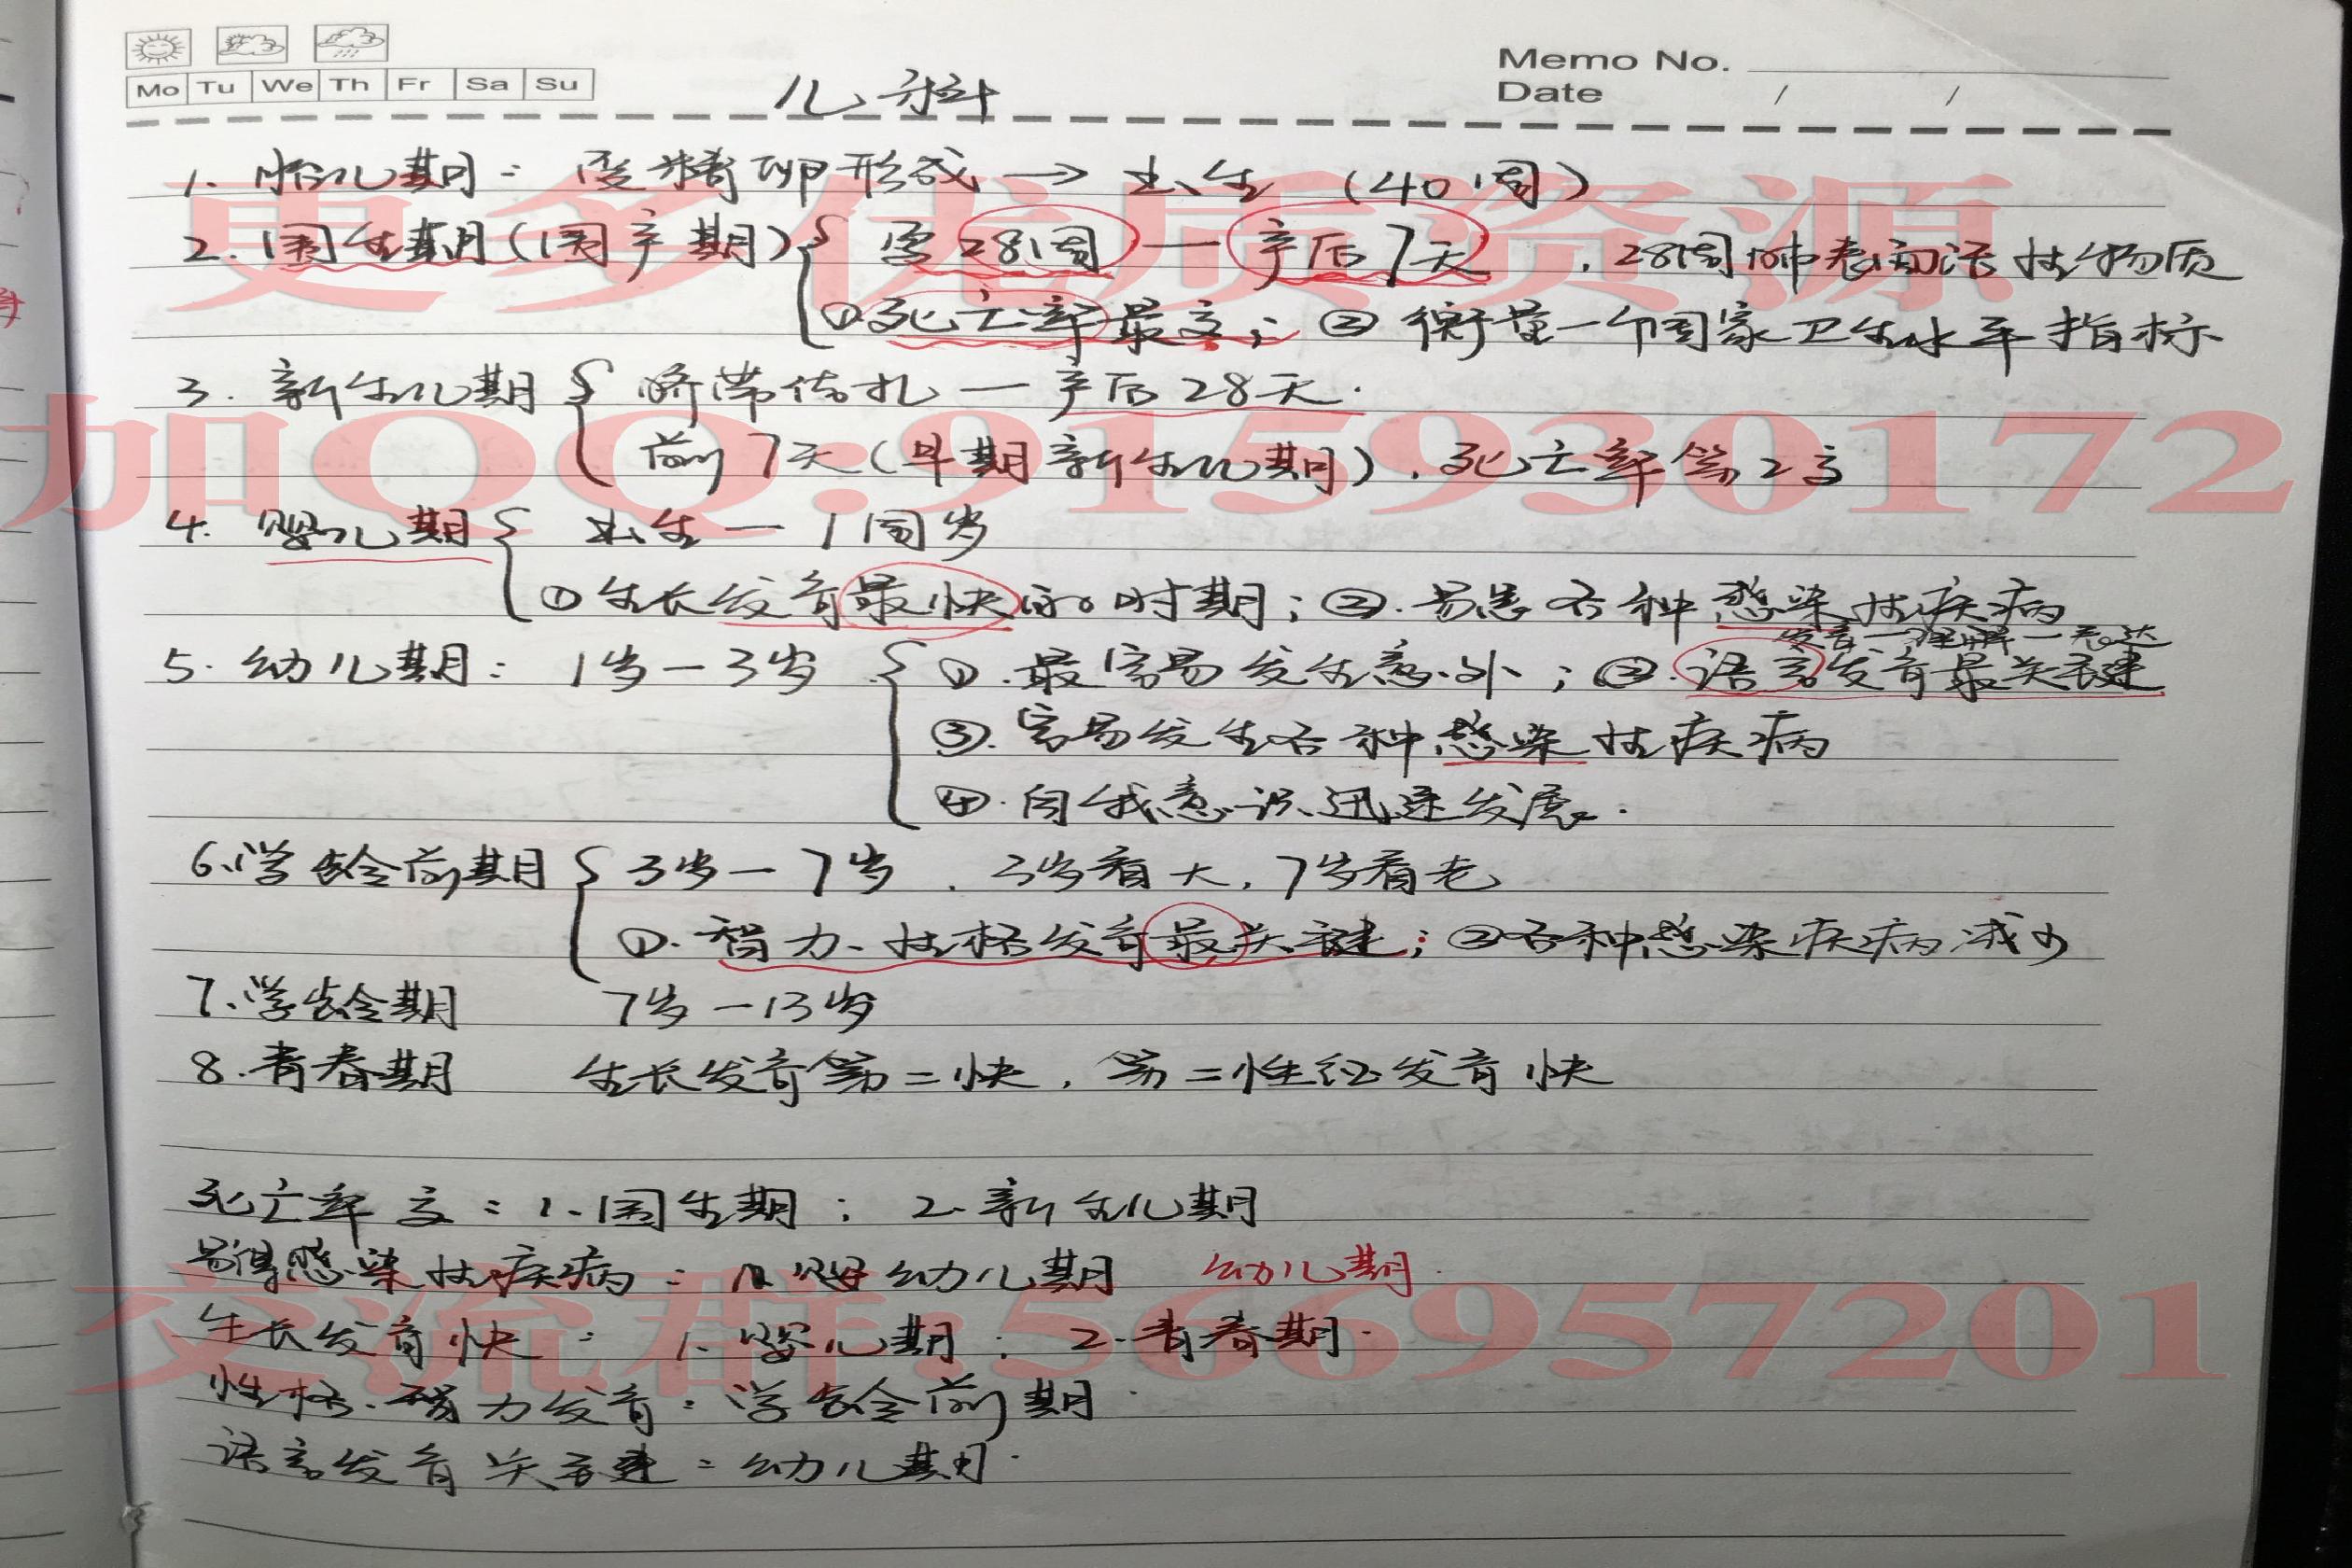 Mo Tu We Th Fr Sa Su
Memo No.
Date / /
儿科
1. 胎儿期：受精卵形成→出生（40周）
2. 围生期（围产期） 孕28周—产后7天，28周肺表面活性物质
①死亡率最高；② 衡量一个国家卫生水平指标
3. 新生儿期 脐带结扎—产后28天.
前7天（早期新生儿期），死亡率第2高
4. 婴儿期 出生—1周岁
①生长发育最快的时期；②.易患各种感染性疾病
发音—理解—表达
5. 幼儿期：1岁—3岁 ①.最容易发生意外；②.语言发育最关键
③.容易发生各种感染性疾病
④.自我意识迅速发展.
6.学龄前期 3岁—7岁，3岁看大，7岁看老
①.智力、性格发育最关键；②各种感染疾病减少
7.学龄期 7岁—13岁
8.青春期 生长发育第二快，第二性征发育快
死亡率高：1.围生期；2.新生儿期
易得感染性疾病： 婴幼儿期 幼儿期.
生长发育快：1.婴儿期；2.青春期.
性格.智力发育：学龄前期.
语言发育关键：幼儿期.
更多优质资源
加QQ:915930172
交流群:566957201